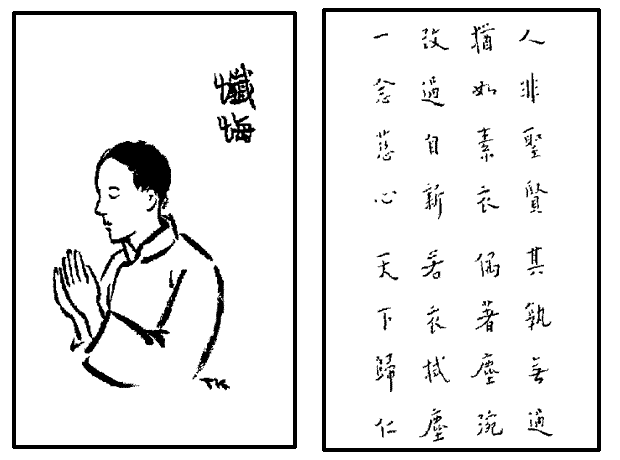 懺悔
TK
人非聖賢其孰無過
猶如素衣偶著塵涴
改過自新若衣拭塵
一念慈心天下歸仁